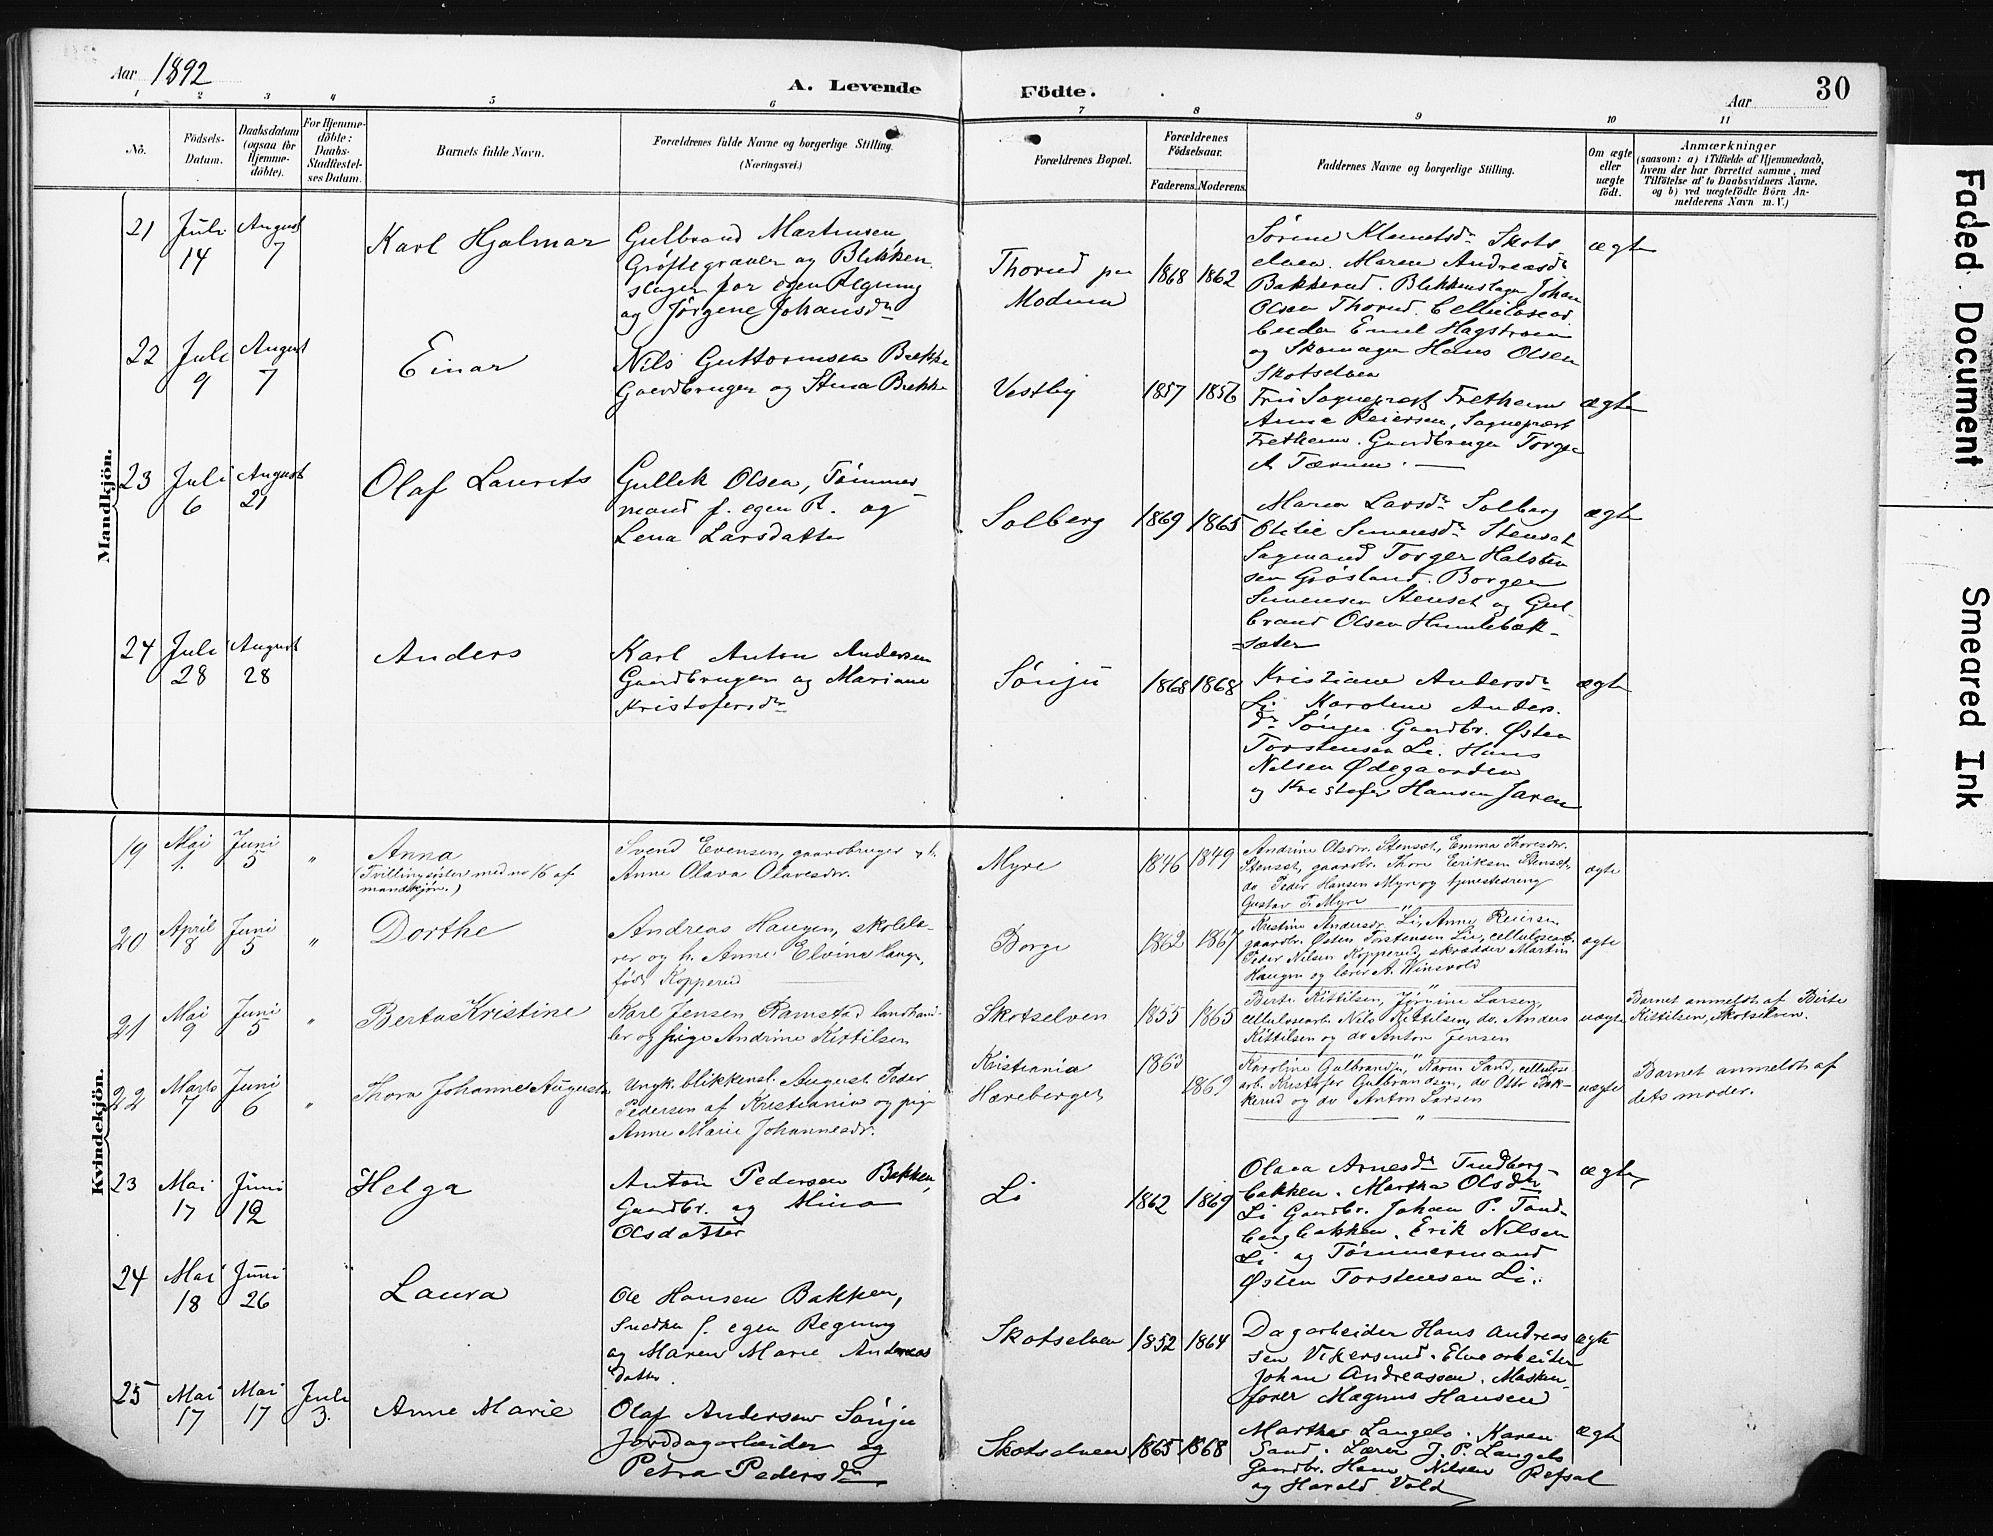 Aar 1892
A. Levende Födte.
Aar
30
1 2 3 4 5 6 7 8 9 10 11
Nò.
Födsels-Datum.
Daabsdatum (ogsaa for Hjemme-döbte).
For Hjemme-döbte: Daabs-Stadfæstel-ses Datum.
Barnets fulde Navn.
Forældrenes fulde Navne og borgerlige Stilling. (Næringsvei.)
Forældrenes Bopæl.
Forældrenes Födselsaar.
Faderens. Moderens.
Faddernes Navne og borgerlige Stilling.
Om ægte eller uægte födt.
Anmærkninger
(saasom: a) i Tilfælde af Hjemmedaab,
hvem der har forrettet samme, med
Tilföielse af to Daabsvidners Navne.
og b) ved uægtefödte Börn An-
melderens Navn m. V.)
Mandkjön.
21 Juli 14 August 7
Karl Hjalmar
Gulbrand Martinsen,
Grøftegraver og Blikken
slager for egen Regning
og Jørgine Johansdr
Thorud paa
Modum
1868 1862
Sørine Klemetsdr Skots
elven. Maren Andreasdr
Bakkerud. Blikkenslager Johan
Olsen Thorud. Celluloséar
beider Emil Hagstrøm
og Skomager Hans Olsen
Skotselven
ægte
22 Juli 9 August 7
Einar
Nils Guttormsen Brekke
Gaardbruger og Stina Brekke
Vestby
1857 1856
Fru Sogneprest Fretheim
Anne Reiersen, Sogneprest
Fretheim. Gaardbruger Torger
A. Tærum.
ægte
23 Juli 6 August 21
Olaf Laurits
Gullek Olsen, Tømmer
mand f. egen R. og
Lena Larsdatter
Solberg
1869 1865
Maren Larsdr Solberg
Otilie Simensdr Stenset
Sagmand Torger Halsten
sen Grøsland. Borger
Simensen Stenset og Gul-
brand Olsen Humlebæk-
sæter
ægte
24 Juli 28 August 28
Anders
Karl Anton Andersen
Gaardbruger og Mariane
Kristofersdr
Sønju
1868 1868
Kristiane Andersdr
Li. Karoline Anders.
dr Sønju. Gaardbr. Østen
Torstensen Li. Hans
Nilsen Ødegaarden
og Kristofer Hansen Jaren
ægte
Kvindekjön.
19 Mai 1. Juni 5 "
Anna
(Tvillingsøster med no 16 af
mandkjøn.)
Svend Evensen, gaardbruger og h.
Anne Olava Olavesdr.
Myre
1846 1849
Andrine Olsdr. Stenset, Emma Thoresdr.
Stenset, gaardbr. Thore Eriksen Stenset,
do Peder Hansen Myre og tjenestedreng
Gustav T. Myre
ægte
20 April 8 Juni 5 "
Dorthe
Andreas Haugen, skolelæ-
rer og h. Anne Elvine Haugen,
født Kopperud
Borge
1862 1867
Kristine Andersdr. Li, Anne Reiersen
gaardbr. Østen Torstensen Lie, cellulosearb.
Peder Nilsen Kopperud, skrædder Martin
Haugen og lærer A. Winsvold
ægte
21 Mai 9 Juni 5 "
Berta Kristine
Karl Jensen Ramstad landhand-
ler og pige Andrine Kittilsen
Skotselven
1855 1865
Birte Kittilsen, Jørgine Larsen,
cellulosearb. Nils Kittilsen, do. Anders
Kittilsen og do Anton Jensen
uægte
Barnet anmeldt af Birte
Kittilsen, Skotselven.
22 Marts 7 Juni 6 "
Thora Johanne Augusta
Ungk. blikkensl. August Peder
Pedersen af Kristiania og pige
Anne Marie Johannesdr.
Kristiania
Hæreberget
1860 1869
Karoline Gulbrandsen, Karen Sand, cellulose
arb. Kristofer Gulbrandsen, do Otto Bak-
kerud og do Anton Larsen
uægte
Barnet anmeldt af
dets moder.
23 Mai 17 Juni 12
Helga
Anton Pedersen Bakken,
Gaardbr. og Alina
Olsdatter
Li
1862 1869
Olava Arnesdr Tandberg-
bakken. Martha Olsdtr
Li. Gaardbr. Johan P. Tand-
bergbakken. Erik Nilsen
Li og Tømmermand
Østen Torstensen Li.
ægte
24 Mai 18 Juni 26
Laura
Ole Hansen Bakken,
Snedker f. egen Regning
og Maren Marie Andreas
datter.
Skotselven
1852 1864
Dagarbeider Hans Andreas
sen Vikersund. Elvearbeider
Johan Andreassen. Maskin-
fører Magnus Hansen
ægte
25 Mai 17 Mai 17 Juli 3.
Anne Marie
Olaf Andersen Sønju
Jorddagarbeider og
Petra Pedersdtr
Skotselven
1865 1868
Marthe Langelo. Karen
Sand. Lærer J. P. Langelo
Gaardbr. Hans Nilsen Refsal
og Harald Vold
ægte
Faded Document
Smeared Ink